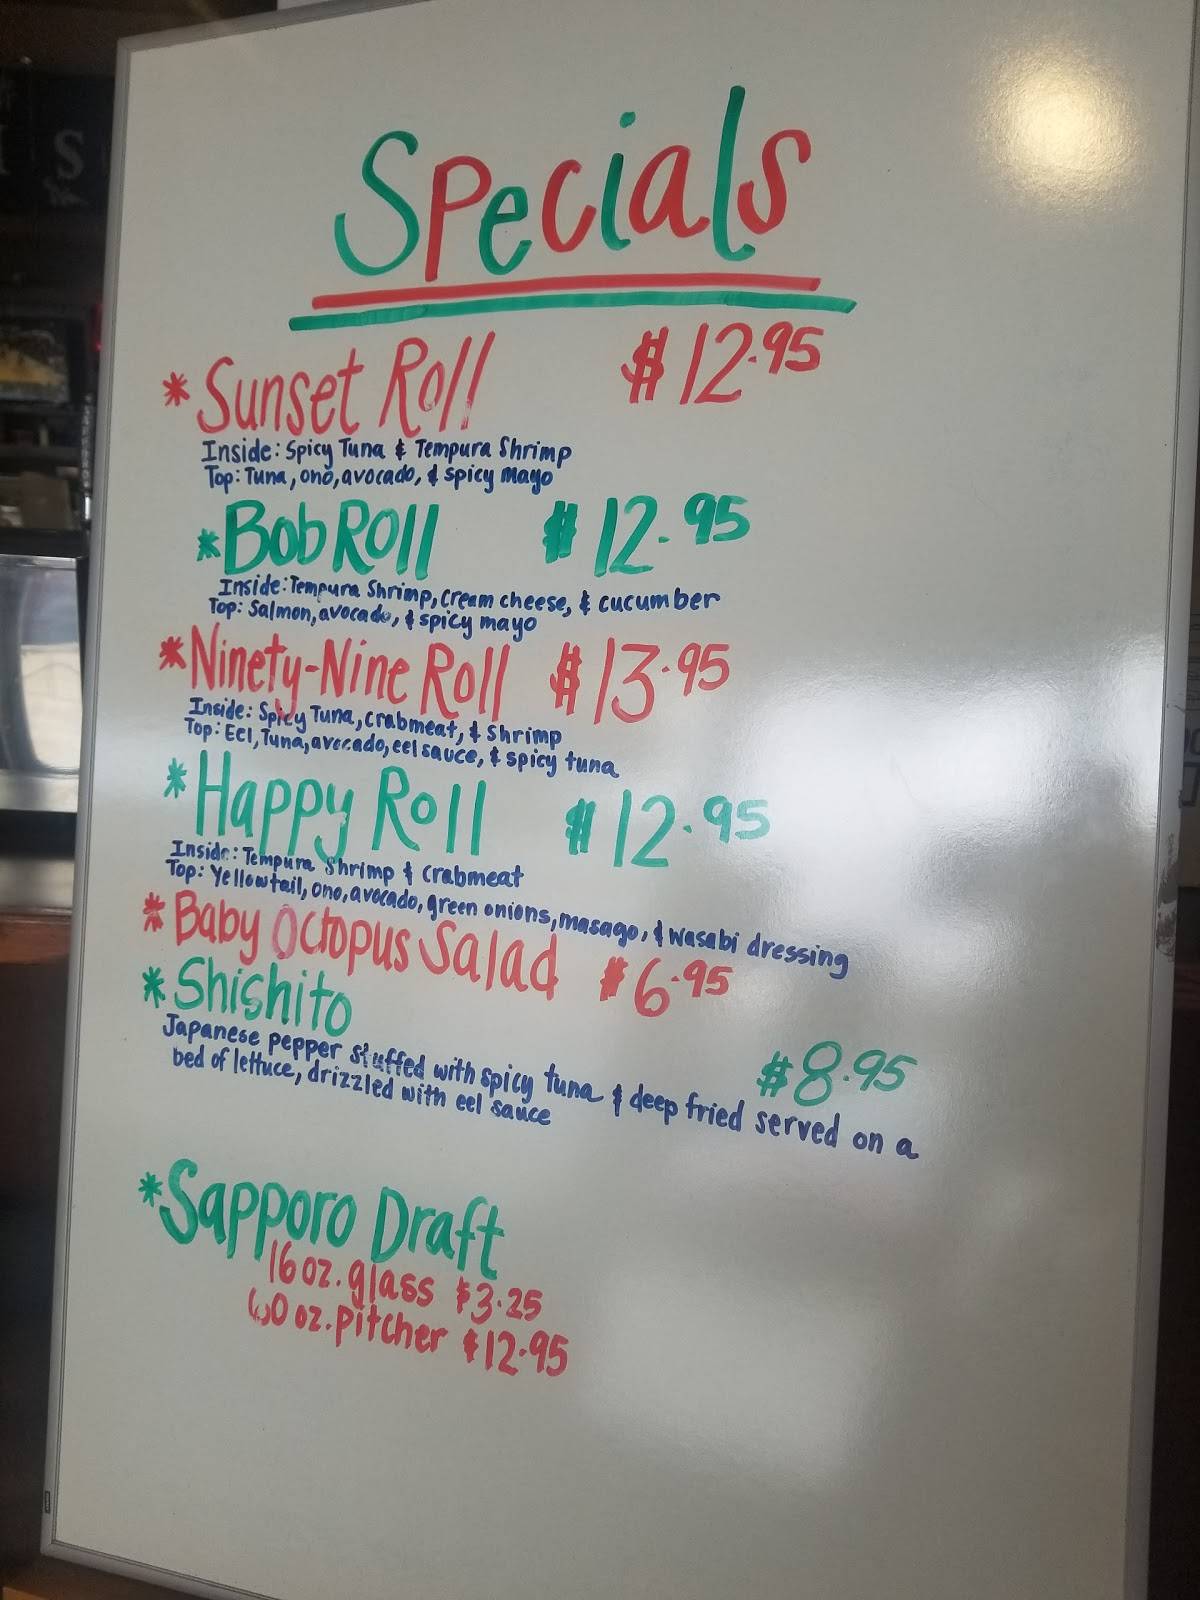 Specials
* Sunset Roll $12.95
Inside: Spicy Tuna & Tempura Shrimp
Top: Tuna, ono, avocado, & spicy mayo
* Bob Roll $12.95
Inside: Tempura Shrimp, cream cheese, & cucumber
Top: Salmon, avocado, & spicy mayo
* Ninety-Nine Roll $13.95
Inside: Spicy Tuna, crabmeat, & Shrimp
Top: Eel, Tuna, avocado, eel sauce, & spicy tuna
* Happy Roll $12.95
Inside: Tempura Shrimp & crabmeat
Top: Yellowtail, ono, avocado, green onions, masago, & wasabi dressing
* Baby Octopus Salad $6.95
* Shishito $8.95
Japanese pepper stuffed with spicy tuna & deep fried served on a
bed of lettuce, drizzled with eel sauce
* Sapporo Draft
16 oz. glass $3.25
60 oz. pitcher $12.95